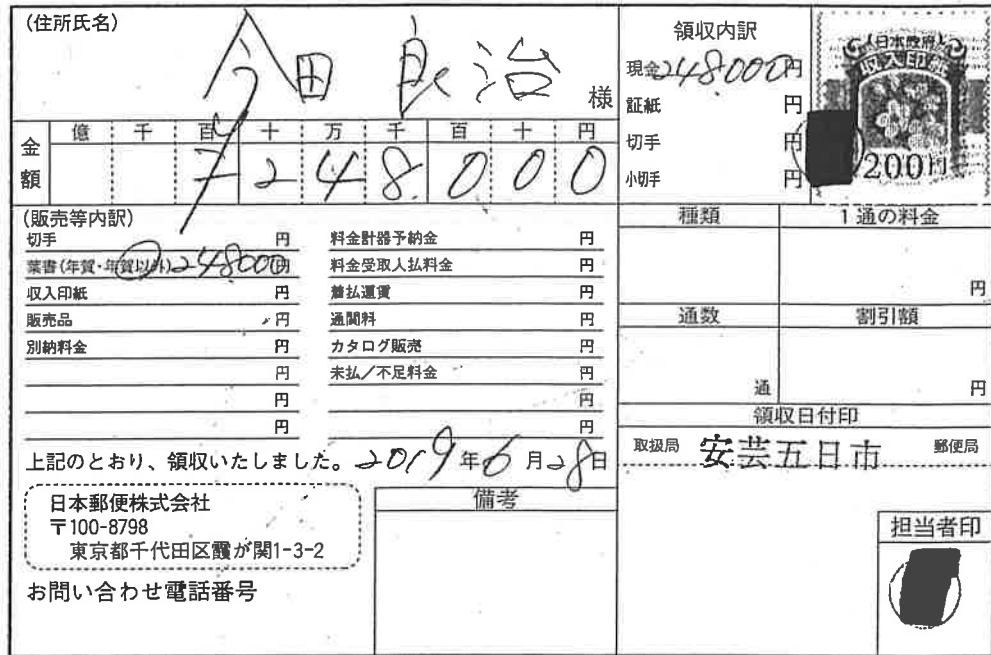 (住所氏名)
今田良治 様
金額 億 千 百 十 万 千 百 十 円
248.000
領収内訳
現金 248.000円
証紙 円
切手 円
小切手 円
日本政府
収入印紙
200円
(販売等内訳)
切手 円
葉書(年賀・年賀以外) 248000円
収入印紙 円
販売品 円
別納料金 円
円
円
円
料金計器予納金 円
料金受取人払料金 円
着払運賃 円
通関料 円
カタログ販売 円
未払/不足料金 円
円
円
種類 1通の料金
円
通数 割引額
通 円
領収日付印
取扱局 安芸五日市 郵便局
上記のとおり、領収いたしました。2019年6月28日
日本郵便株式会社
〒100-8798
東京都千代田区霞が関1-3-2
お問い合わせ電話番号
備考
担当者印